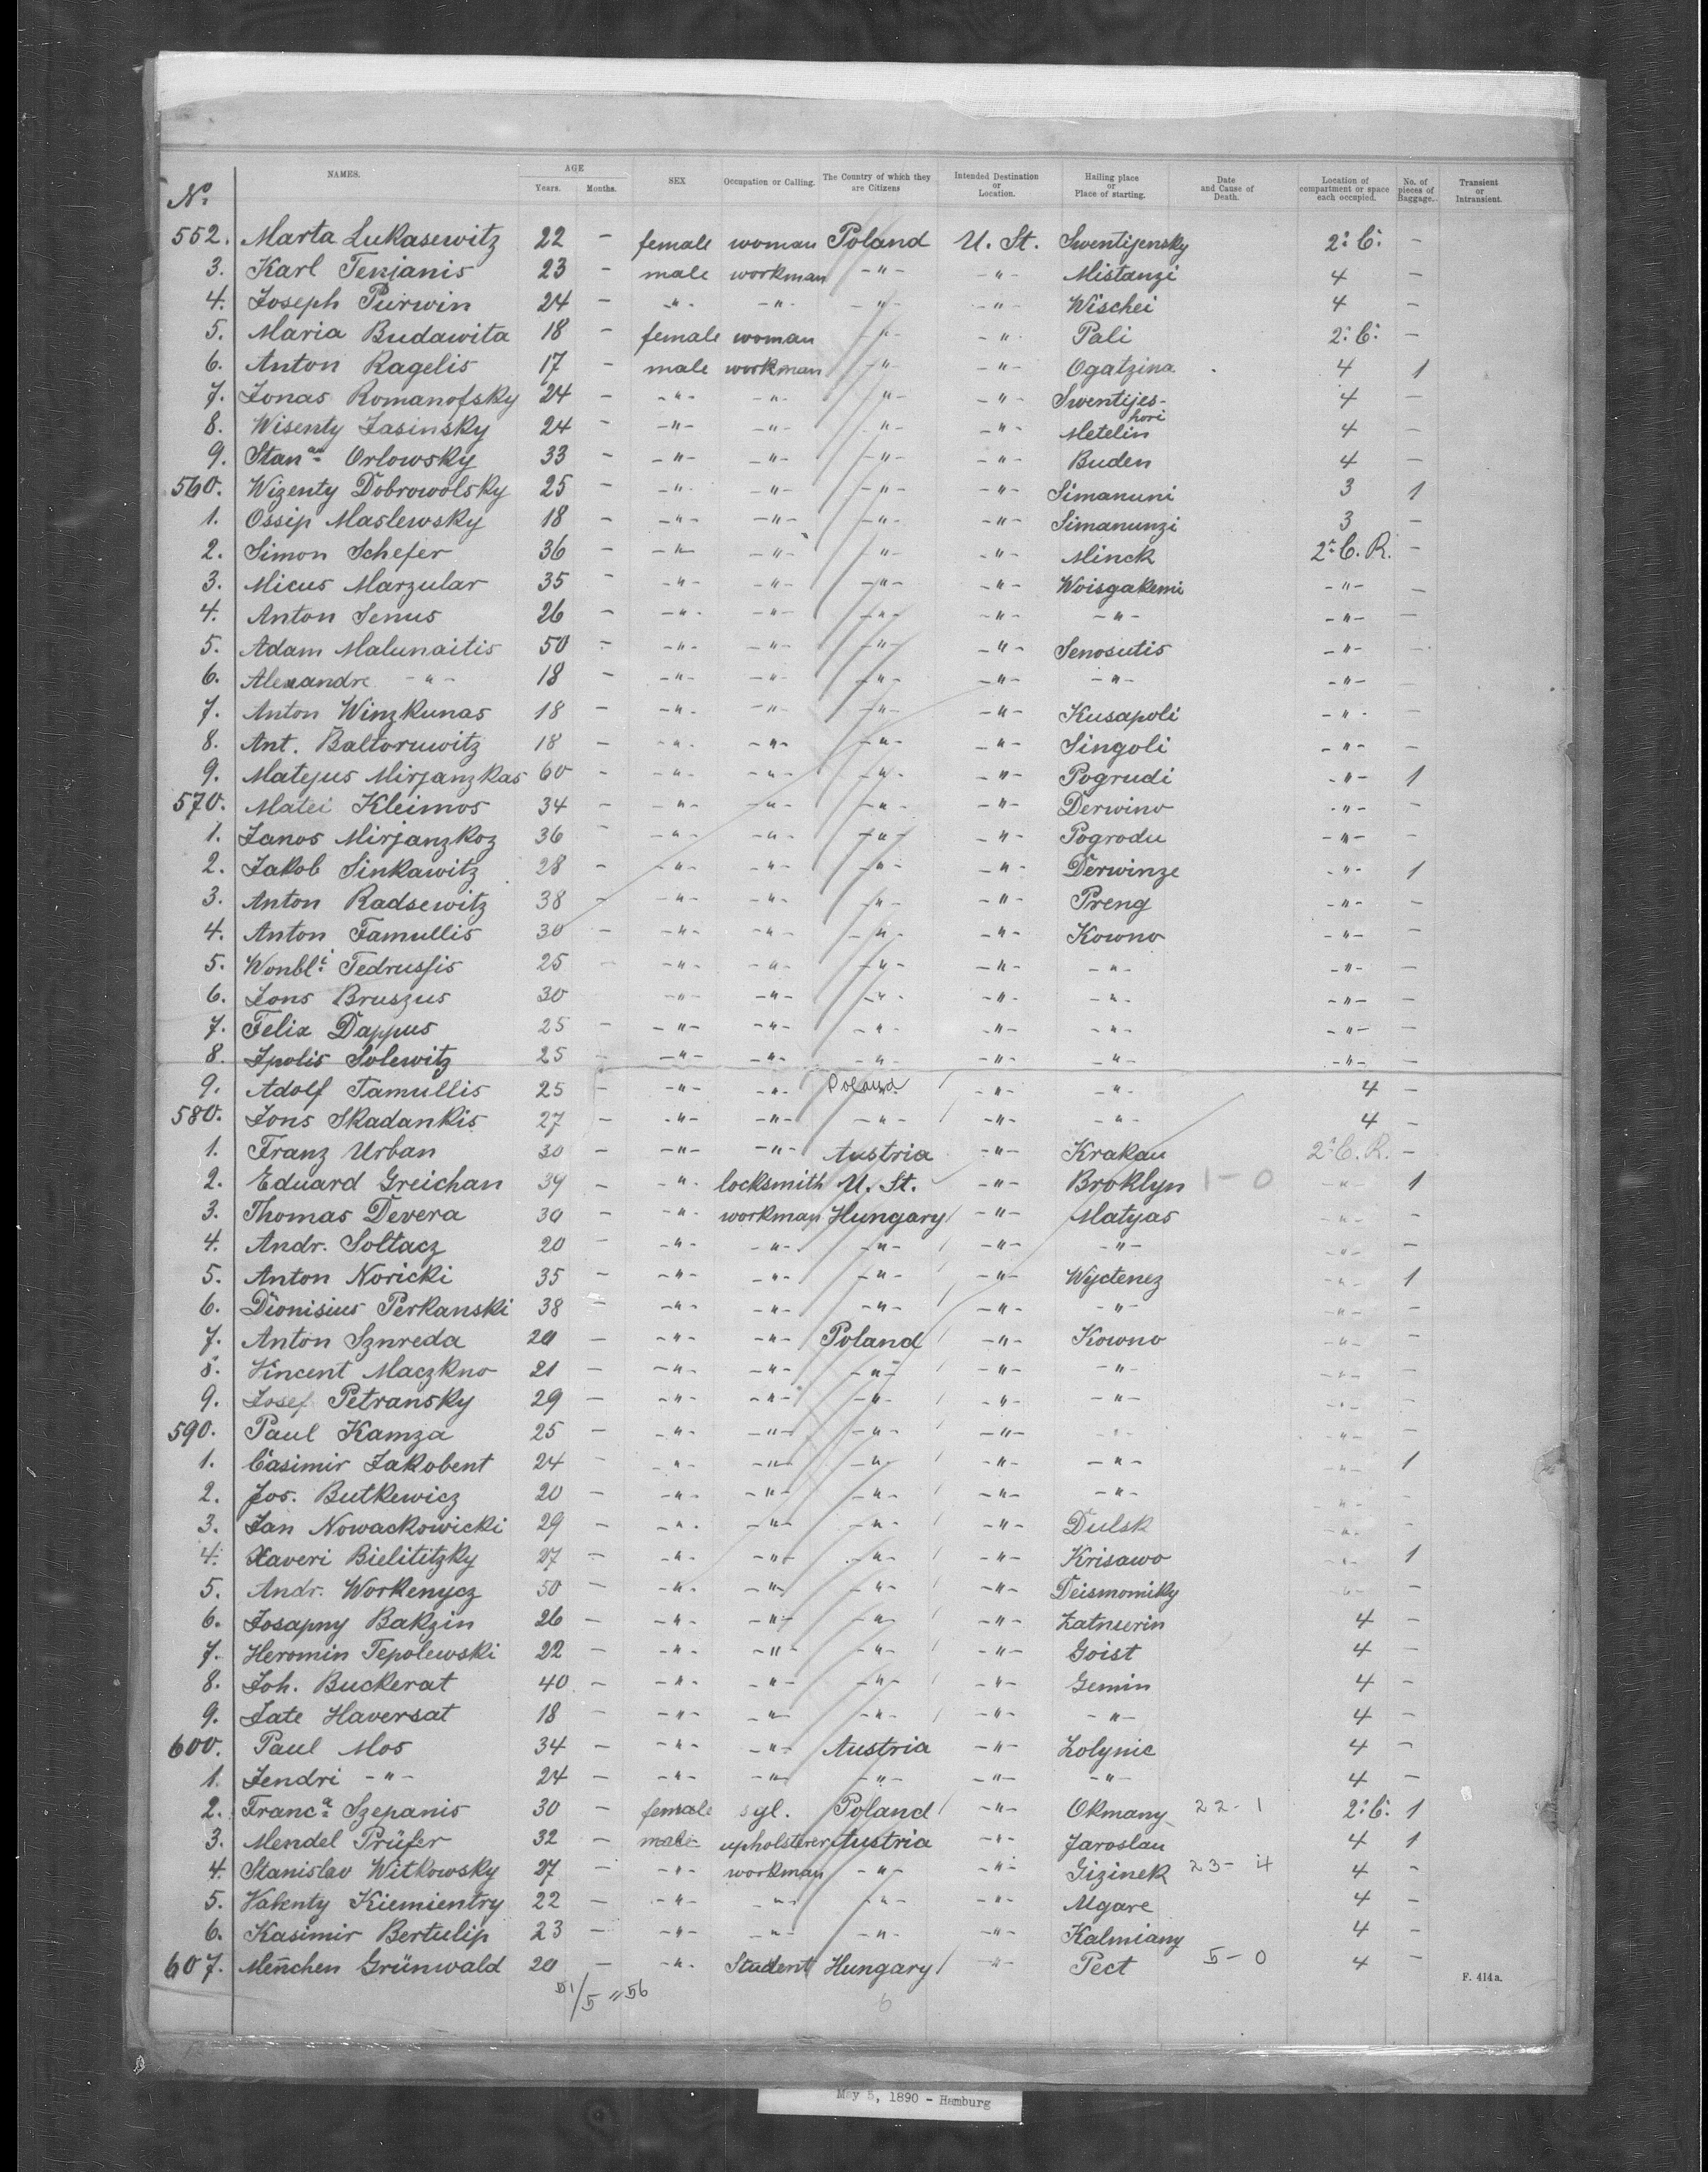 No. NAMES. AGE Years. Months. SEX Occupation or Calling. The Country of which they are Citizens Intended Destination or Location. Hailing place or Place of starting. Date and Cause of Death. Location of compartment or space each occupied. No. of pieces of Baggage. Transient or Intransient.
552. Marta Lukasewitz 22 - female woman Poland U. St. Swentijensky 2. C. -
3. Karl Tenjanis 23 - male workman -"- -"- Mistanzi 4 -
4. Joseph Purwin 24 - -"- -"- -"- -"- Wischei 4 -
5. Maria Budawita 18 - female woman -"- -"- Pali 2. C. -
6. Anton Ragelis 17 - male workman -"- -"- Ogatzina 4 1
7. Jonas Romanofsky 24 - -"- -"- -"- -"- Swentijes-hori 4 -
8. Wisenty Jasinsky 24 - -"- -"- -"- -"- Metelin 4 -
9. Stan. Orlowsky 33 - -"- -"- -"- -"- Buden 4 -
560. Wizenty Dobrowolsky 25 - -"- -"- -"- -"- Simanuni 3 1
1. Ossip Maslewsky 18 - -"- -"- -"- -"- Simanunzi 3 -
2. Simon Schefer 36 - -"- -"- -"- -"- Minck 2. C. R. -
3. Micus Marzular 35 - -"- -"- -"- -"- Woisgakemi -"- -
4. Anton Senus 26 - -"- -"- -"- -"- -"- -"- -
5. Adam Malunaitis 50 - -"- -"- -"- -"- Senosutis -"- -
6. Alexandre -"- 18 - -"- -"- -"- -"- -"- -"- -
7. Anton Winzkunas 18 - -"- -"- -"- -"- Kusapoli -"- -
8. Ant. Baltoruwitz 18 - -"- -"- -"- -"- Singoli -"- -
9. Matejus Mirjanzkas 60 - -"- -"- -"- -"- Pogrudi -"- 1
570. Matei Kleimos 34 - -"- -"- -"- -"- Derwino -"- -
1. Janos Mirjanzkoz 36 - -"- -"- -"- -"- Pogrodu -"- -
2. Jakob Sinkawitz 28 - -"- -"- -"- -"- Derwinze -"- 1
3. Anton Radsewitz 38 - -"- -"- -"- -"- Preng -"- -
4. Anton Tamullis 30 - -"- -"- -"- -"- Kowno -"- -
5. Wonbl. Tedrussis 25 - -"- -"- -"- -"- -"- -"- -
6. Jons Bruszus 30 -"- -"- -"- -"- -"- -"- -
7. Felix Dappus 25 - -"- -"- -"- -"- -"- -"- -
8. Ipolis Solewitz 25 - -"- -"- -"- -"- -"- -"- -
9. Adolf Tamullis 25 - -"- -"- Poland -"- -"- 4 -
580. Jons Skadankis 27 - -"- -"- -"- -"- -"- 4 -
1. Franz Urban 30 - -"- -"- Austria -"- Krakau 2. C. R. -
2. Eduard Greichan 39 - -"- locksmith U. St. -"- Broklyn 1-0 -"- 1
3. Thomas Devera 30 - -"- workman Hungary -"- Matyas -"- -
4. Andr. Soltacz 20 - -"- -"- -"- -"- -"- -"- -
5. Anton Noricki 35 - -"- -"- -"- -"- Wyctenez -"- 1
6. Dionisius Perkanski 38 - -"- -"- -"- -"- -"- -"- -
7. Anton Sznreda 20 - -"- -"- Poland -"- Kowno -"- -
8. Vincent Maczkno 21 - -"- -"- -"- -"- -"- -"- -
9. Josef Petransky 29 - -"- -"- -"- -"- -"- -"- -
590. Paul Kamza 25 - -"- -"- -"- -"- -"- -"- -
1. Casimir Jakobent 24 - -"- -"- -"- -"- -"- -"- 1
2. Jos. Butkewicz 20 - -"- -"- -"- -"- -"- -"- -
3. Jan Nowackowicki 29 - -"- -"- -"- -"- Dulsk -"- -
4. Xaveri Bielititzky 27 - -"- -"- -"- -"- Krisawo -"- 1
5. Andr. Workenycz 50 - -"- -"- -"- -"- Deismomiky -"- -
6. Josapny Bakzin 26 - -"- -"- -"- -"- Zatnwrin 4 -
7. Heromin Tepolewski 22 - -"- -"- -"- -"- Goist 4 -
8. Joh. Buckerat 40 - -"- -"- -"- -"- Gemin 4 -
9. Jate Haversat 18 - -"- -"- -"- -"- -"- 4 -
600. Paul Mos 34 - -"- -"- Austria -"- Zolynie 4 -
1. Jendri -"- 24 - -"- -"- -"- -"- -"- 4 -
2. Franca Szepanis 30 - female sgl. Poland -"- Okmany 22-1 2. C. 1
3. Mendel Prüfer 32 - male upholsterer Austria -"- Jaroslau 4 1
4. Stanislav Witkowsky 27 - -"- workman -"- -"- Gizinek 23-4 4 -
5. Valenty Kiemientry 22 - -"- -"- -"- -"- Algare 4 -
6. Kasimir Bertulip 23 - -"- -"- -"- -"- Kalmiany 4 -
607. Meñchen Grünwald 20 - -"- Student Hungary -"- Pect 5-0 4 -
F. 414a.
51/5 "56 6
May 5, 1890 - Hamburg